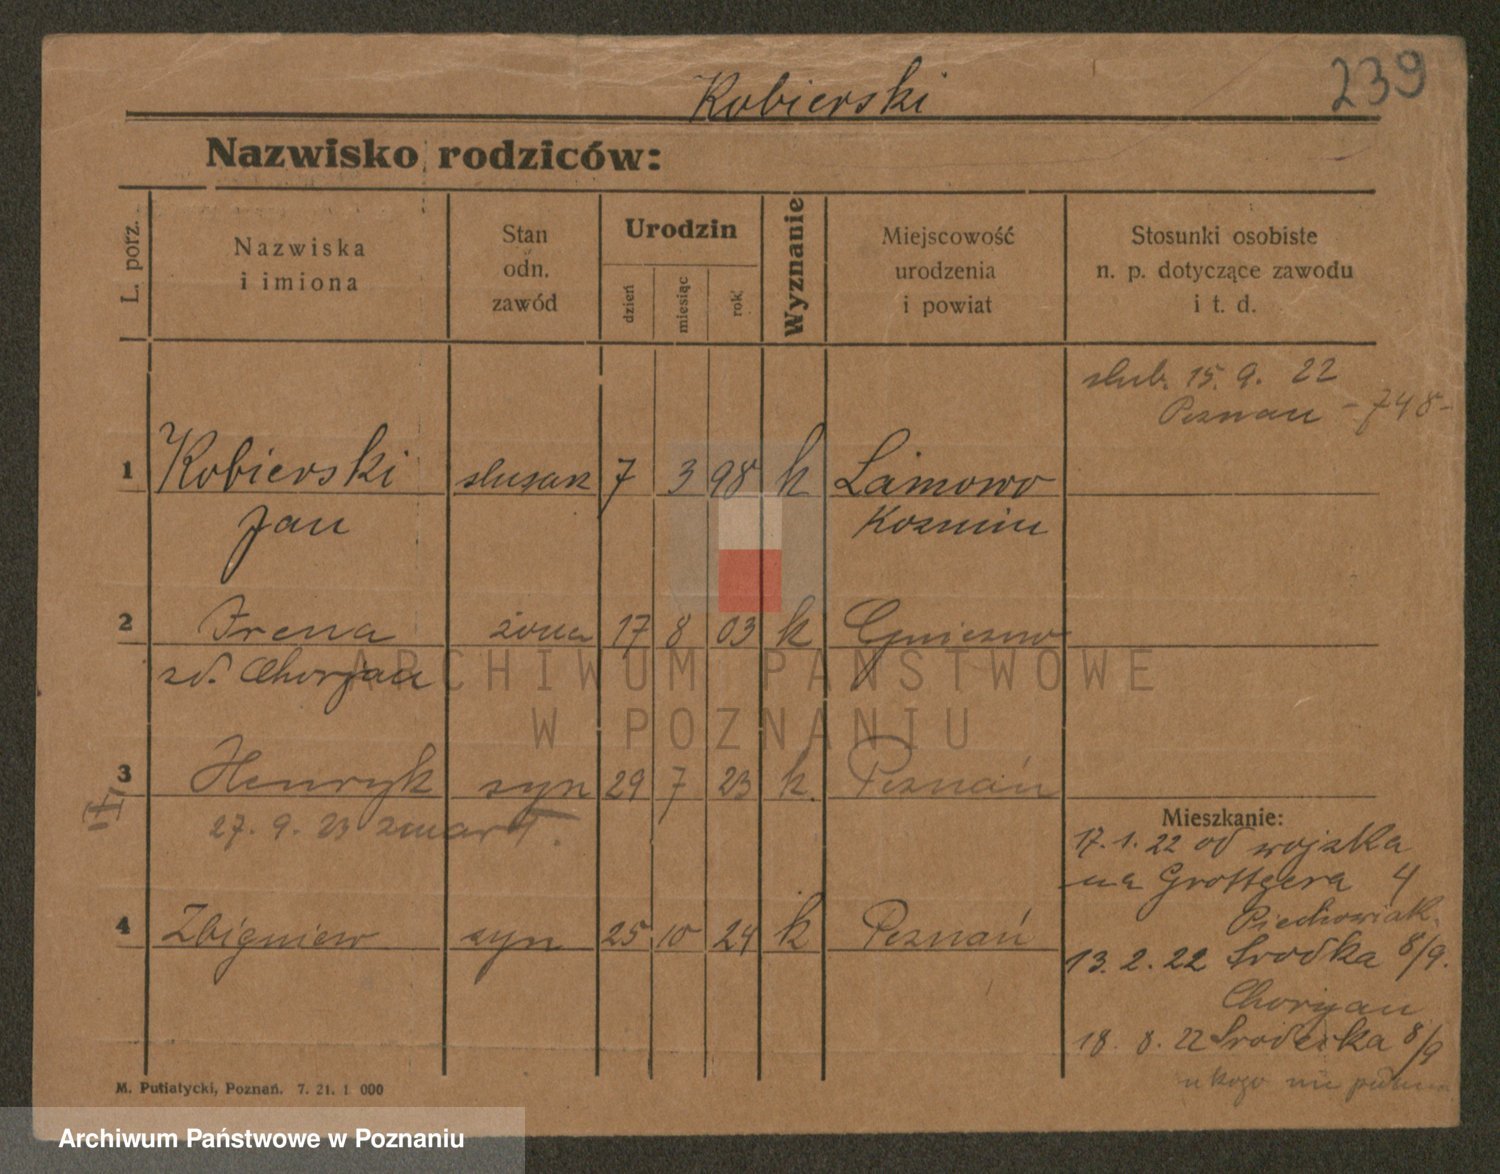 239
Kobierski
Nazwisko rodziców:
L. porz.
Nazwiska
i imiona
Stan
odn.
zawód
Urodzin
dzień
miesiąc
rok
Wyznanie
Miejscowość
urodzenia
i powiat
Stosunki osobiste
n. p. dotyczące zawodu
i t. d.
ślub. 15. 9. 22
Poznań - 748 -
1 Kobierski ślusarz 7 3 98 k
Jan Kozmin
2 Irena żona 17 8 03 k Gniezno
zd. Chorjan
3 Henryk syn 29 7 23 k. Poznań
27. 9. 23 zmarł.
4 Zbigniew syn 25 10 24 k Poznań
Mieszkanie:
17. 1. 22 od wojska
na Grottgera 4
Piechowiak.
13. 2. 22 Srodka 8/9.
Chorjan
18. 8. 22 8/9
u kogo nie
M. Putiatycki, Poznań. 7. 21. 1 000
ARCHIWUM PAŃSTWOWE
W POZNANIU
Archiwum Państwowe w Poznaniu